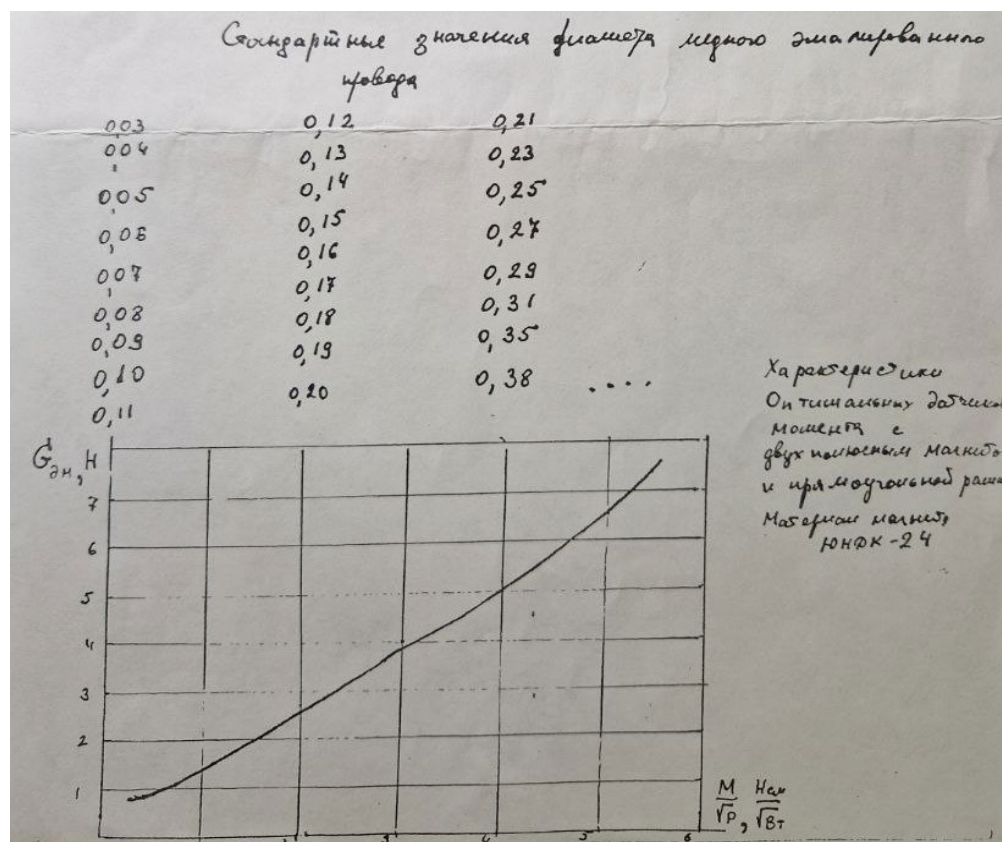 Стандартные значения диаметра медного эмалированного
провода
0,03 0,12 0,21
0,04 0,13 0,23
0,05 0,14 0,25
0,06 0,15 0,27
0,07 0,16 0,29
0,08 0,17 0,31
0,09 0,18 0,35
0,10 0,19 0,38 ....
0,11 0,20
Характеристики
Оптимальных датчико
момента с
двухполюсным магнито
и прямоугольной рамк
Материал магнита
ЮНДК-24
G дм, Н
7
6
5
4
3
2
1
M/√P, Нсм/√Вт
4 5 6